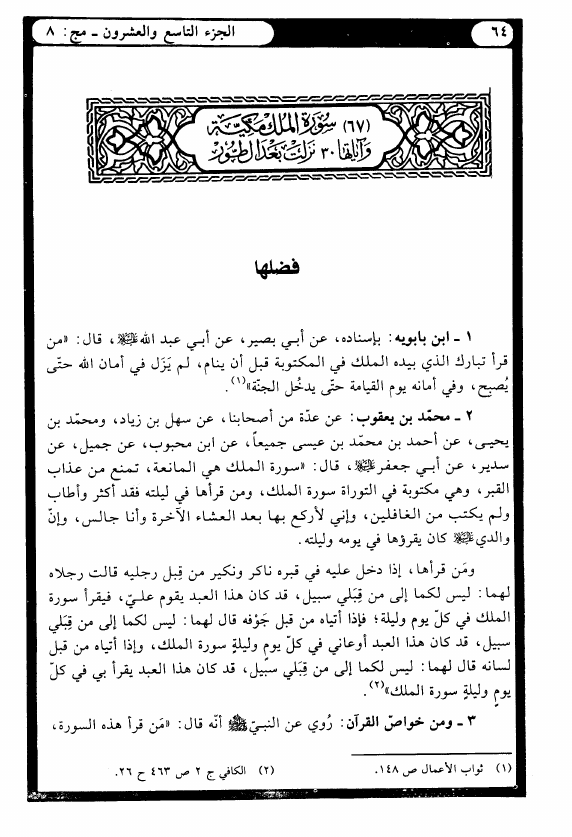 ٦٤
الجزء التاسع والعشرون ـ مج: ٨
(٦٧) سورة الملك مكية
وآياتها ٣٠ نزلت بعد الطور
فضلها
١ ـ ابن بابويه: بإسناده، عن أبي بصير، عن أبي عبد الله عليه السلام، قال: «من
قرأ تبارك الذي بيده الملك في المكتوبة قبل أن ينام، لم يَزَل في أمان الله حتّى
يُصبح، وفي أمانه يوم القيامة حتّى يدخُل الجنّة»(١).
٢ ـ محمّد بن يعقوب: عن عدّة من أصحابنا، عن سهل بن زياد، ومحمّد بن
يحيى، عن أحمد بن محمّد بن عيسى جميعاً، عن ابن محبوب، عن جميل، عن
سدير، عن أبي جعفر عليه السلام، قال: «سورة الملك هي المانعة، تمنع من عذاب
القبر، وهي مكتوبة في التوراة سورة الملك، ومن قرأها في ليلته فقد أكثر وأطاب
ولم يكتب من الغافلين، وإني لأركع بها بعد العشاء الآخرة وأنا جالس، وإنّ
والدي عليه السلام كان يقرؤها في يومه وليلته.
ومَن قرأها، إذا دخل عليه في قبره ناكر ونكير من قِبل رجليه قالت رجلاه
لهما: ليس لكما إلى من قِبَلي سبيل، قد كان هذا العبد يقوم عليّ، فيقرأ سورة
الملك في كلّ يوم وليلة؛ فإذا أتياه من قبل جَوْفه قال لهما: ليس لكما إلى من قِبَلي
سبيل، قد كان هذا العبد أوعاني في كلّ يوم وليلةٍ سورة الملك، وإذا أتياه من قبل
لسانه قال لهما: ليس لكما إلى من قِبَلي سبيل، قد كان هذا العبد يقرأ بي في كلّ
يومٍ وليلةٍ سورة الملك»(٢).
٣ ـ ومن خواصّ القرآن: رُوي عن النبيّ ﷺ أنّه قال: «مَن قرأ هذه السورة،
(١) ثواب الأعمال ص ١٤٨.
(٢) الكافي ج ٢ ص ٤٦٣ ح ٢٦.